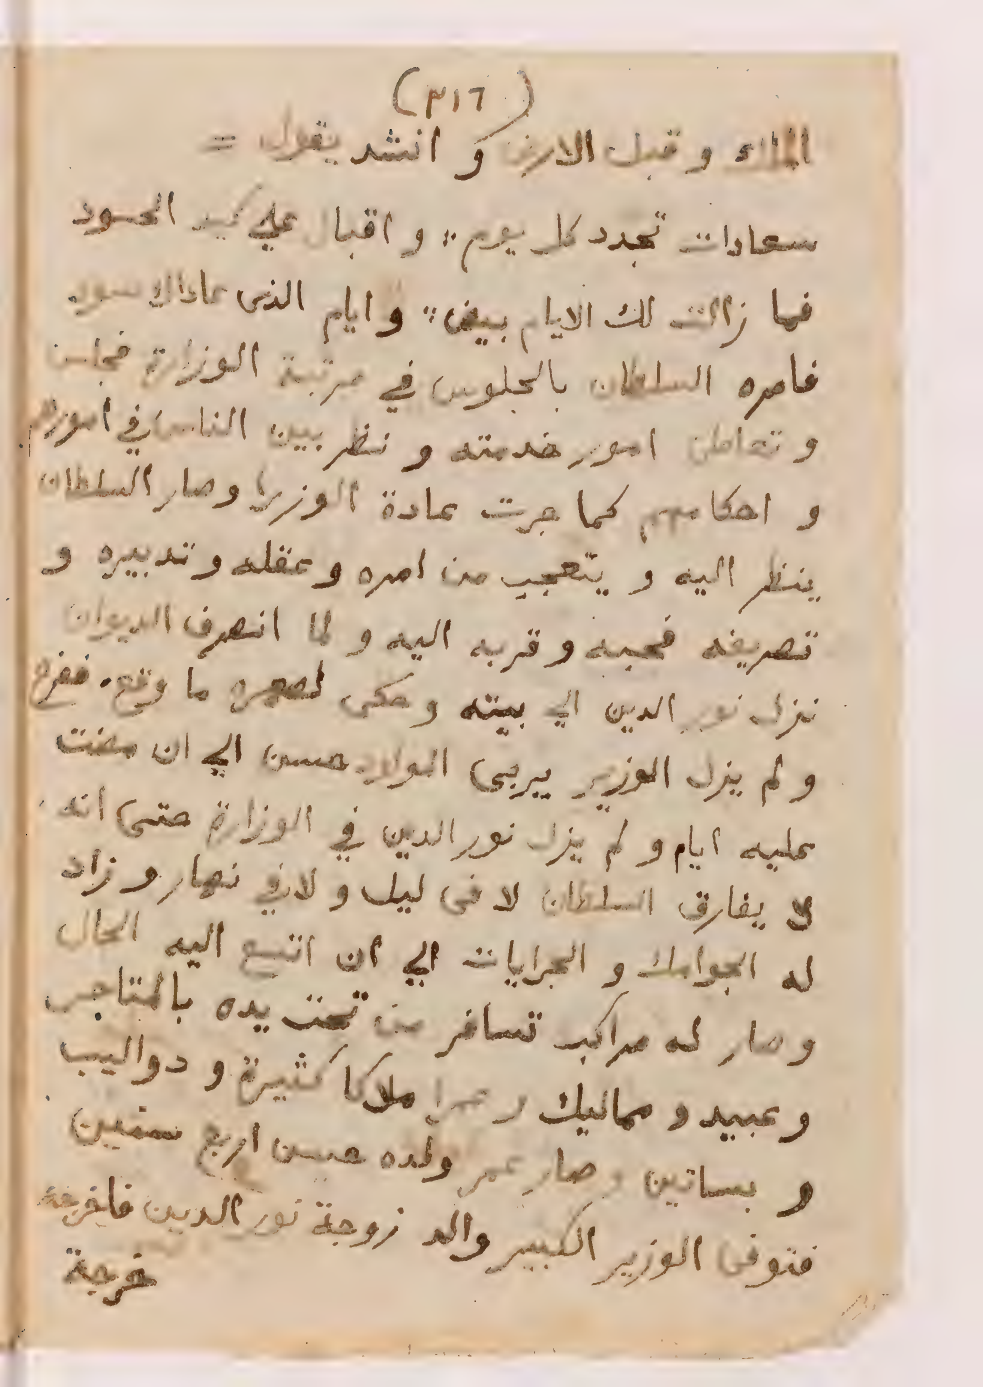 (٣١٦)
الملك و قبل الارض و انشد يقول =
سعادات تجدد كل يوم ؛؛ و اقبال علي كيد الحسود
فما زالت لك الايام بيض ؛؛ و ايام الذى عاداك سود
فامره السلطان بالجلوس في مرتبة الوزارة فجلس
و تعاطى امور خدمته و نظر بين الناس في امورهم
و احكامهم كما جرت عادة الوزرا وصار السلطان
ينظر اليه و يتعجب من امره و عقله و تدبيره و
تصريفه فحبه و قربه اليه و لما انصرف الديوان
نزل نور الدين الي بيته و حكى لصهره ما وقع. ففرح
و لم يزل الوزير يربى الولاد حسن الي ان مضت
عليه ايام و لم يزل نور الدين في الوزارة حتى انه
لا يفارق السلطان لا فى ليل و لا في نهار و زاد
له الجوامك و الجرايات الي ان اتسع اليه الحال
وصار له مراكب تسافر من تحت يده بالمتاجر
و عبيد و مماليك و عمر املاكا كثيرة و دواليب
و بساتين و صار عمر ولده حسن اربع سنين
فتوفى الوزير الكبير والد زوجة نور الدين فاخرجه
خرجة